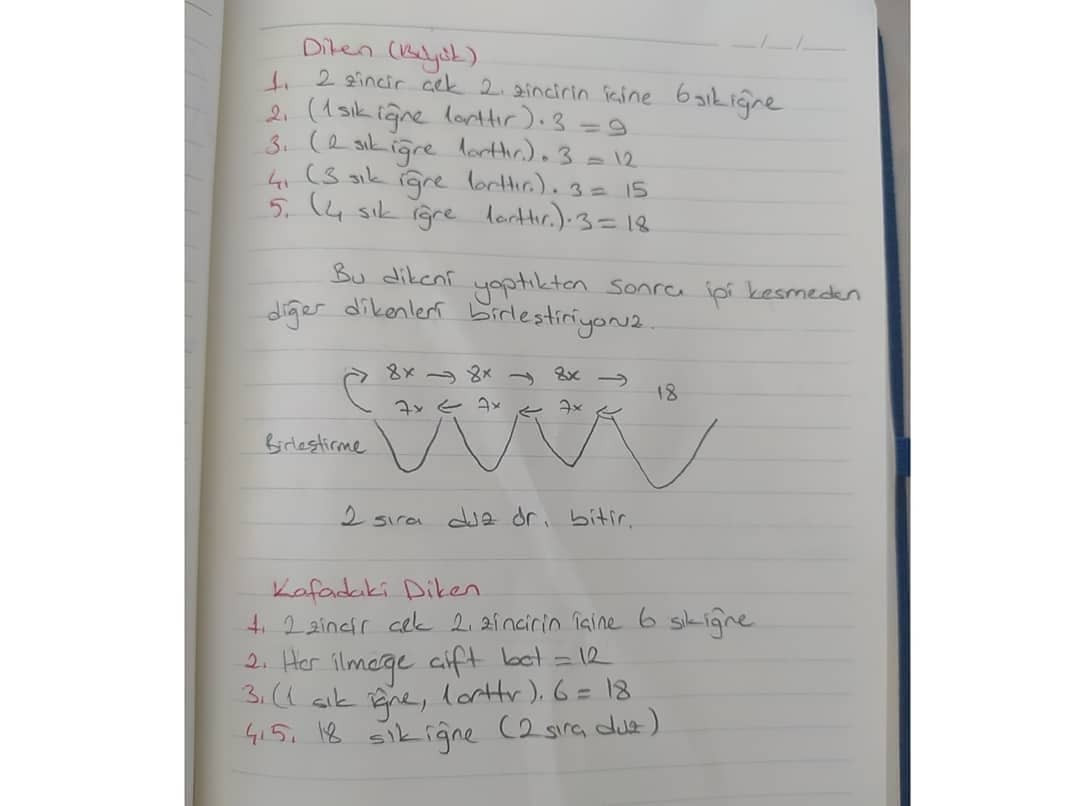 _/_/_
Diken (Büyük)
1. 2 zincir çek 2. zincirin içine 6 sık iğne
2. (1 sık iğne 1 arttır).3 = 9
3. (2 sık iğne 1 arttır.).3 = 12
4. (3 sık iğne 1 arttır.).3 = 15
5. (4 sık iğne 1 arttır.).3 = 18
Bu dikeni yaptıktan sonra ipi kesmeden
diğer dikenleri birleştiriyoruz.
8x → 8x → 8x → 18
7x ← 7x ← 7x ←
Birleştirme
2 sıra düz ör. bitir.
Kafadaki Diken
1. 2 zincir çek 2. zincirin içine 6 sık iğne
2. Her ilmeğe çift bat = 12
3. (1 sık iğne, 1 arttır).6 = 18
4.5. 18 sık iğne (2 sıra düz)